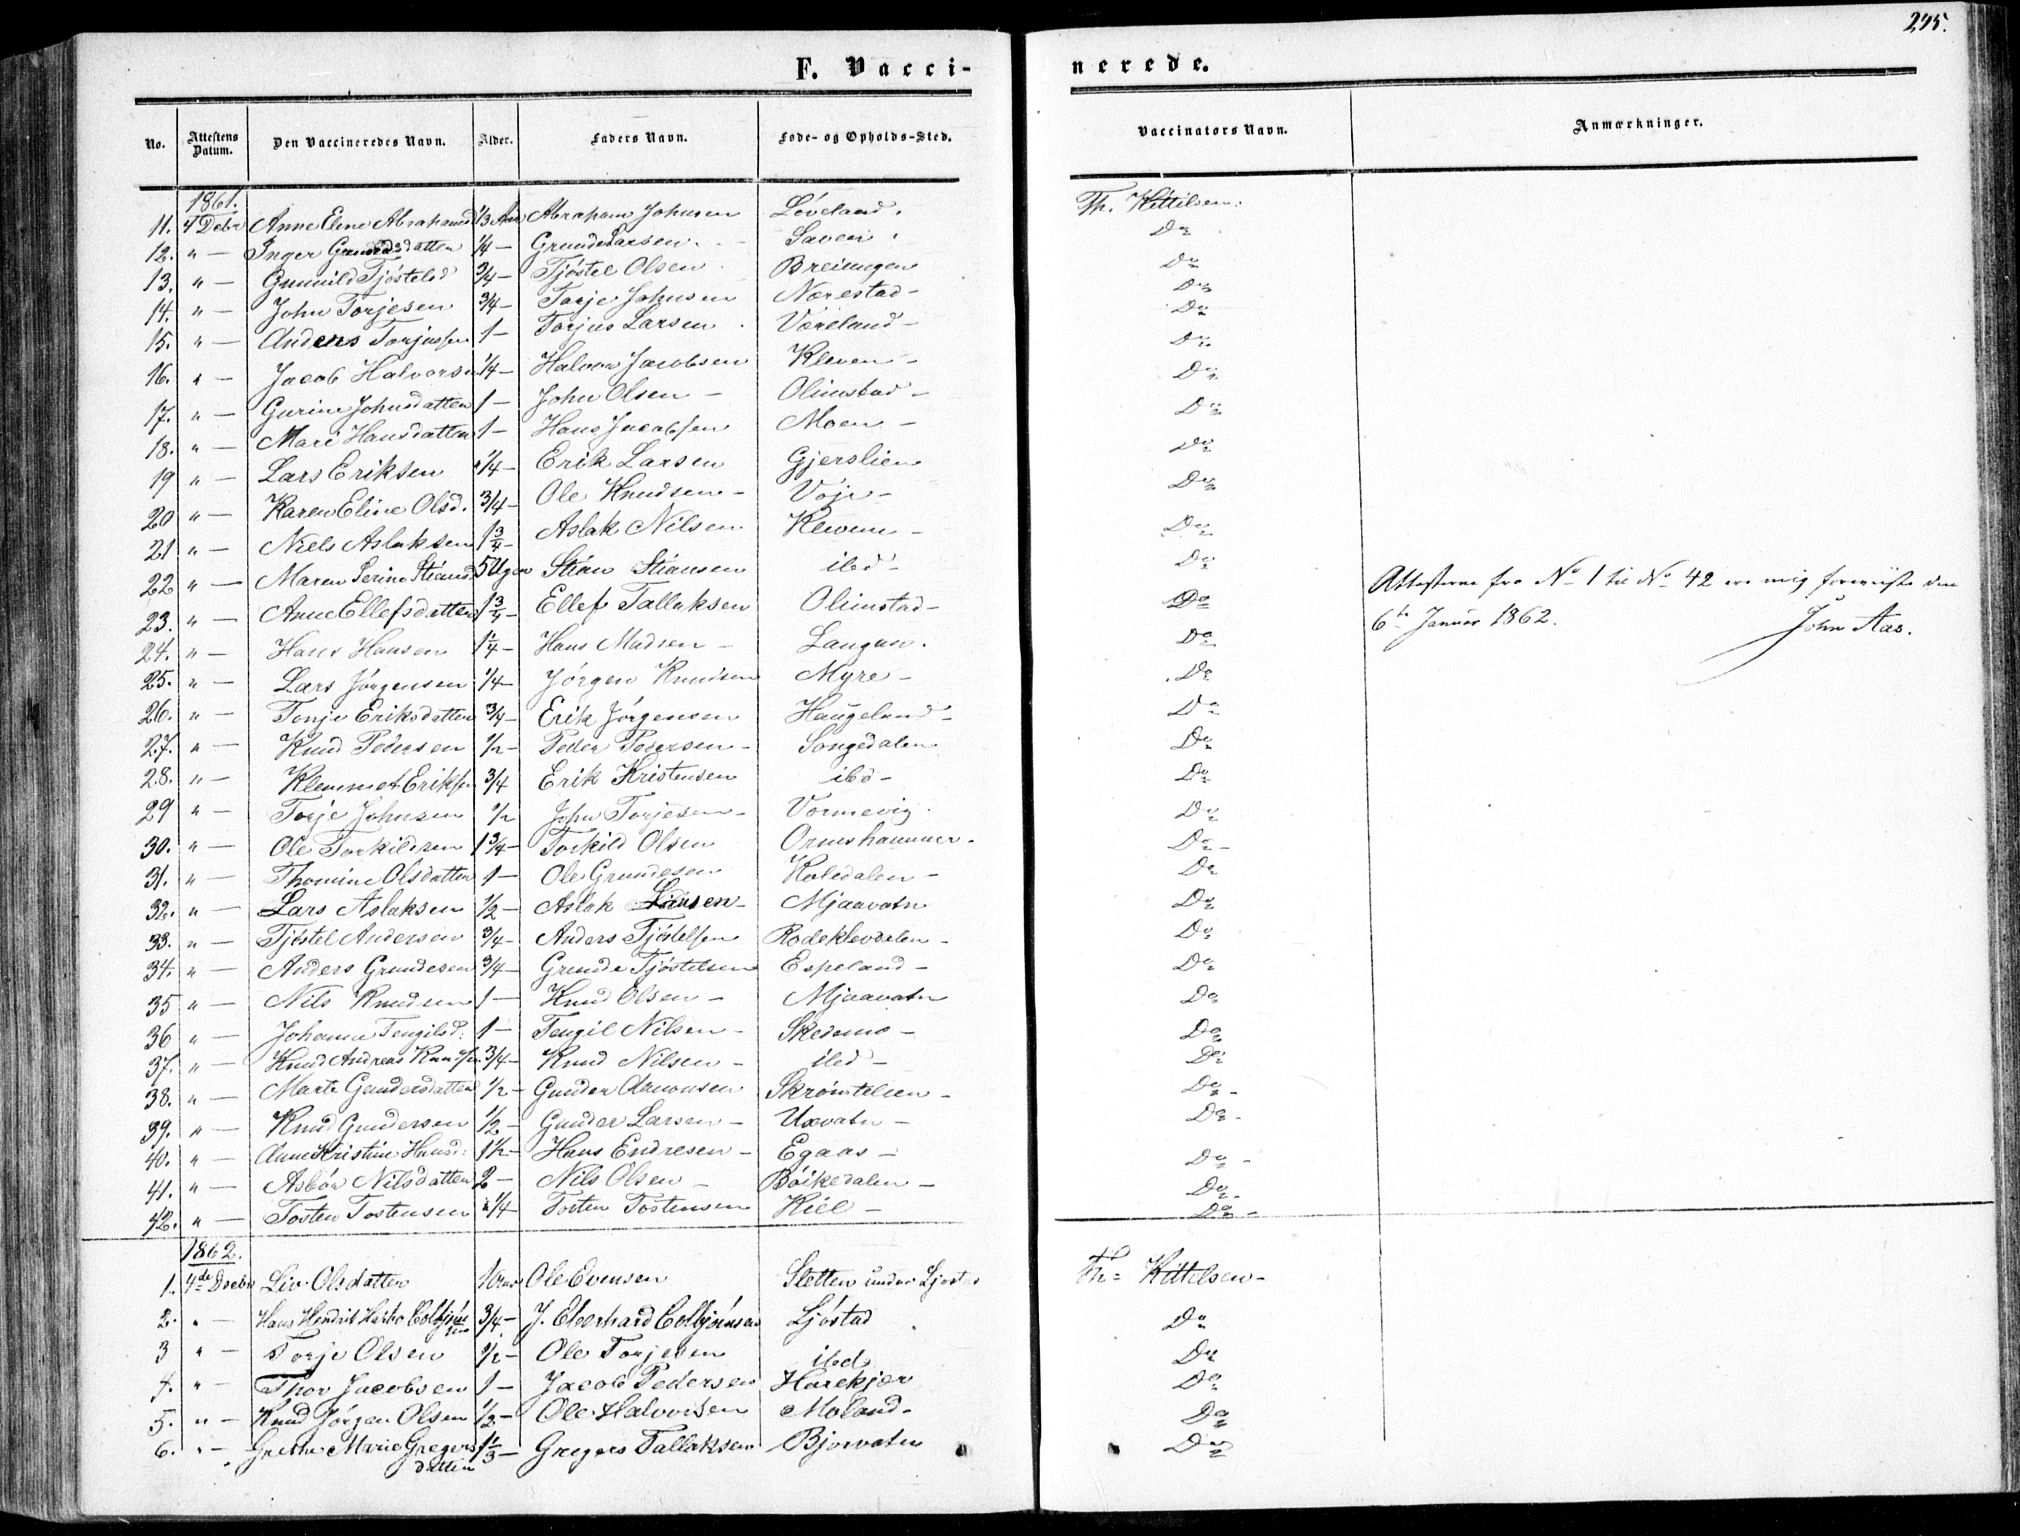 275.
F. Vacci-
nerede.
No. Attestens Datum. Den Vaccineredes Navn. Alder. Faders Navn. Føde- og Opholds-Sted. Vaccinators Navn. Anmærkninger.
1861.
11. 4 Debr Anne Elene Abrahamsd 1/3 Aar Abraham Johnsen Løveland. Th. Kittilsen.
12. " — Inger Grundesdatter 1/4 — Grunde Larsen. Saven. Do
13. " — Gunnild Tjøstelsd 3/4 — Tjøstel Olsen Breiungen Do
14. " — John Torjesen 3/4 — Torje Johnsen Nærestad — Do
15. " — Anders Torjussen 1 — Torjus Larsen Væreland — Do
16. " — Jacob Halvorsen 1/4 — Halvor Jacobsen Kleven — Do
17. " — Gurine Johnsdatter 1 — John Olsen — Olimstad — Do
18. " — Mari Hansdatter 1 — Hans Jacobsen Moen — Do
19 " — Lars Eriksen 1/4 — Erik Larsen Gjerslien Do
20 " — Karen Eline Olsd. 3/4 — Ole Knudsen — Voje — Do
21 " — Niels Aslaksen 1 3/4 — Aslak Nilsen Kleven — Do
22 " — Maren Serine Stiansd 5 Uger Stian Stiansen ibd — Do
23. " — Anne Ellefsdatter 1 3/4 — Ellef Tallaksen Olimstad — Do
24. " — Hans Hansen 1/4 — Hans Madsen — Langan. Do
25. " — Lars Jørgensen 1/4 — Jørgen Knudsen Myre — Do
26. " — Tonje Eriksdatter 3/4 — Erik Jørgensen Haugeland — Do
27. " — Knud Pedersen 1/2 — Peder Pedersen — Songedalen Do
28. " — Klemmet Eriksen 3/4 Erik Kristensen ibd — Do
29 " — Torje Johnsen 1/2 John Torjesen — Vormevig. Do
30. " — Ole Torkildsen 1 3/4 — Torkild Olsen Ormshammer. Do —
31. " — Thomine Olsdatter 1 — Ole Grundesen Holedalen — Do
32. " — Lars Aslaksen 1/2 — Aslak Larsen — Mjaavatn Do
33. " — Tjøstel Andersen 3/4 — Anders Tjøstelsen Rodeklevdalen — Do
34. " — Anders Grundesen 3/4 — Grunde Tjøstelsen Espeland — Do
35 " — Nils Knudsen 1 — Knud Olsen — Mjaavatn Do
36 " — Johanne Tengilsd. 1 — Tengil Nilsen — Skedsmo — Do
37. " — Knud Andreas Knudsen 3/4 — Knud Nilsen — ibd — Do
38. " — Marte Gundersdatter 1/2 — Gunder Amonsen Skrømtelien — Do —
39. " — Knud Gundersen 1/2 — Gunder Larsen — Uxvatn — Do —
40. " — Anne Kristine Hansd: 1 1/2 — Hans Endresen — Egaas — Do —
41. " — Asbør Nilsdatter 2 — Nils Olsen — Bøikedalen — Do —
42. " — Tosten Tostensen 1/4 Tosten Tostensen Kiil — Do —
Attesterne fra No 1 til No 42 ere mig foreviiste den
6te Januar 1862. John Aas.
1862.
1. 4de Decebr Liv Olsdatter 10 Ole Evensen Sletten under Ljøstad Th: Kittelsen —
2. " — Hans Hendrik Harbo Colbjørnsen 3/4. J. Eberhard Colbjørnsen Ljøstad Do
3 " — Torje Olsen 1/2 — Ole Torjesen ibd. Do
4. " — Thor Jacobsen 1 — Jacob Pedersen Harekjær Do
5. " — Knud Jørgen Olsen 1/2 — Ole Halvorsen Moland. Do
6. " — Grethe Marie Gregers datter 1 1/3 — Gregers Tallaksen Bjorvatn Do